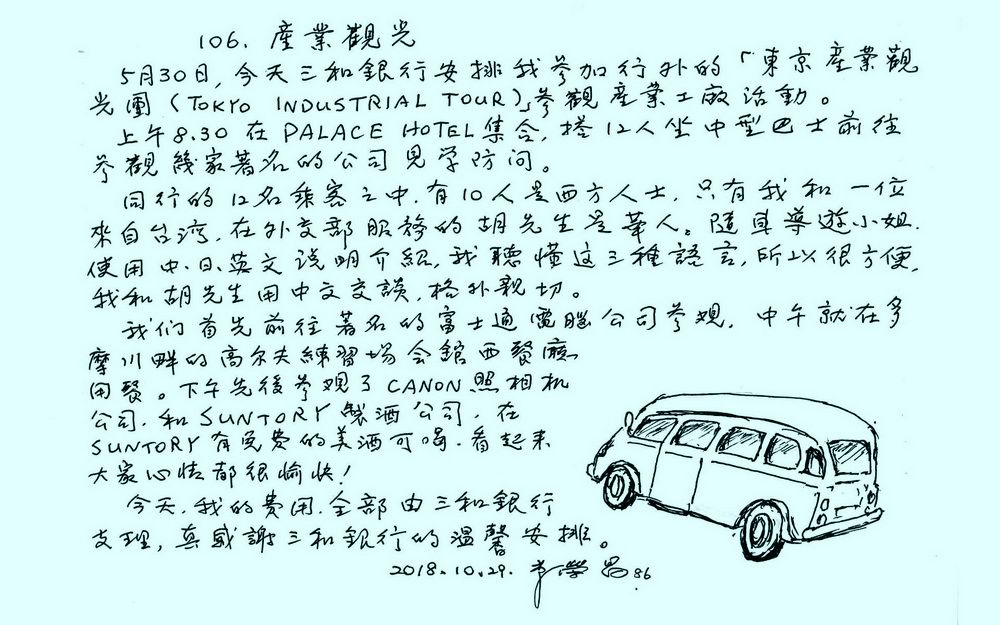 106. 産業觀光
5月30日, 今天三和銀行安排我參加行外的「東京産業觀
光團 (TOKYO INDUSTRIAL TOUR)」參觀産業工廠活動。
上午8.30 在 PALACE HOTEL 集合, 搭12人坐中型巴士前往
參觀幾家著名的公司見学访问。
同行的12名乘客之中, 有10人是西方人士, 只有我和一位
來自台湾, 在外交部服務的胡先生是華人。隨車導遊小姐,
使用中、日、英文説明介紹, 我聽懂这三種語言, 所以很方便,
我和胡先生用中文交談, 格外親切。
我们首先前往著名的富士通電腦公司參观, 中午就在多
摩川畔的高尔夫練習場会館西餐廳
用餐。下午先後參观了CANON照相机
公司, 和SUNTORY製酒公司, 在
SUNTORY有免费的美酒可喝, 看起来
大家心情都很愉快!
今天, 我的費用, 全部由三和銀行
支理, 真感謝三和銀行的溫馨安排。
2018.10.29. 學 86